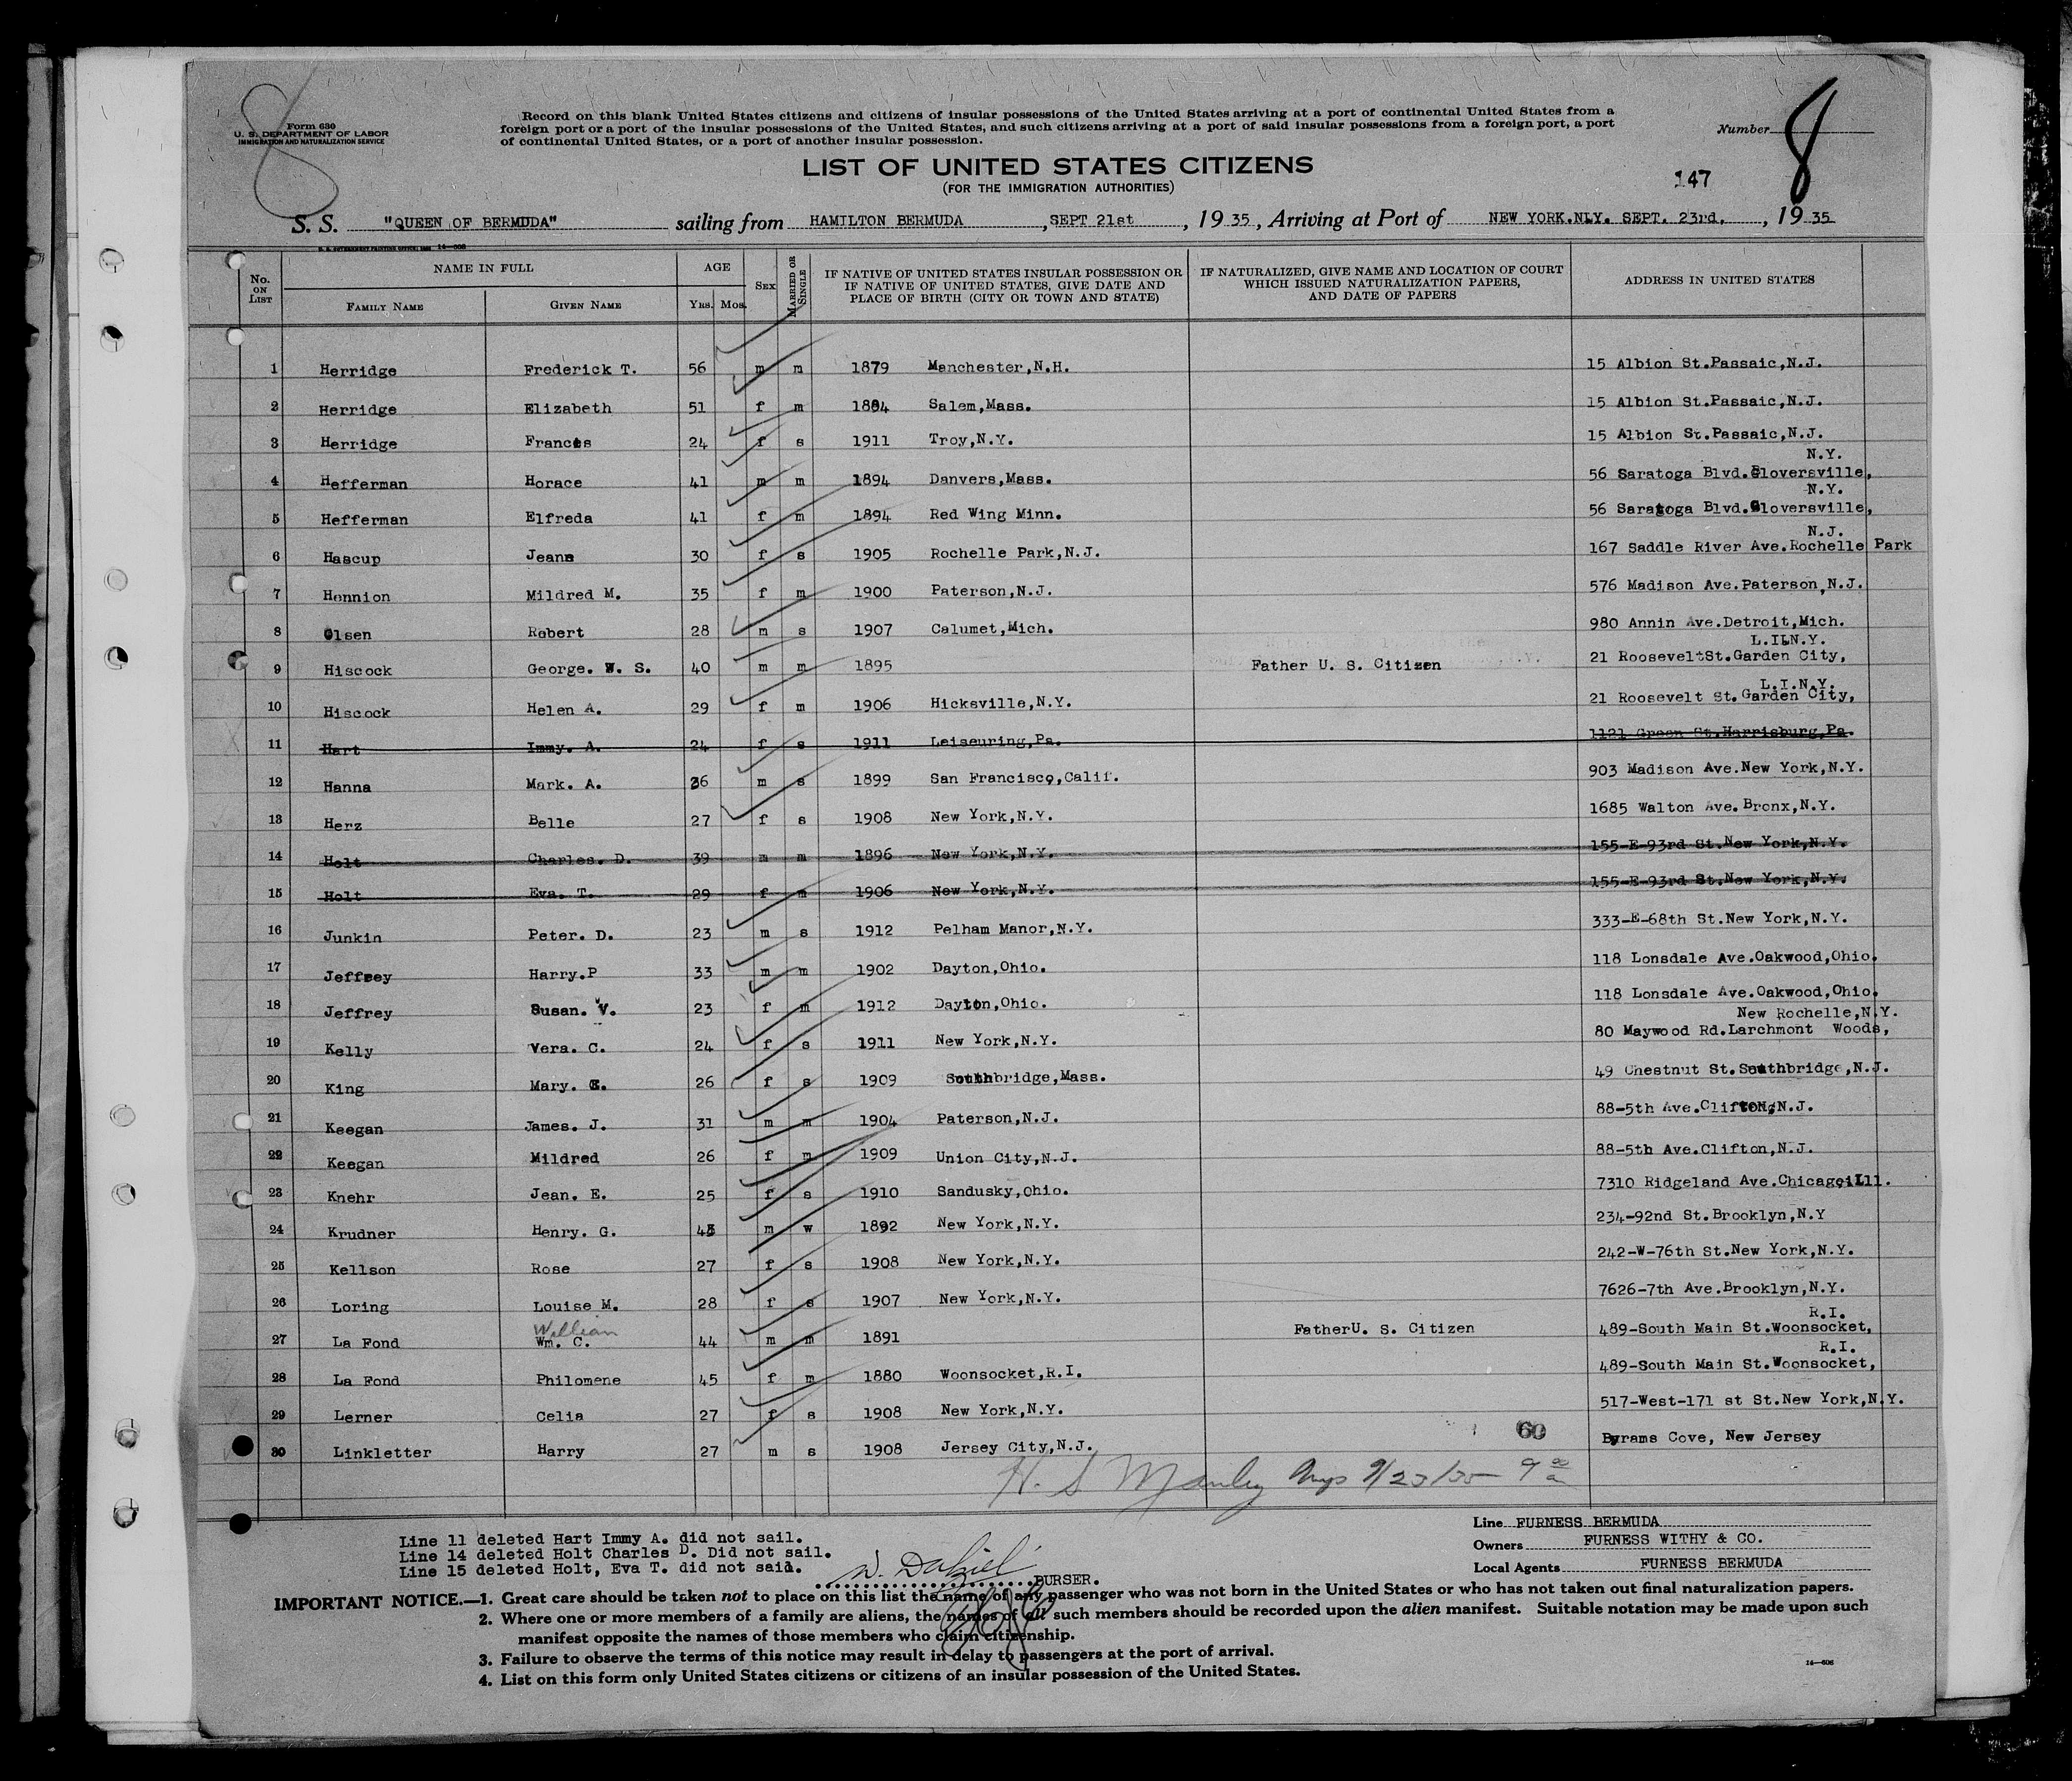 8
Form 630
U. S. DEPARTMENT OF LABOR
IMMIGRATION AND NATURALIZATION SERVICE
Record on this blank United States citizens and citizens of insular possessions of the United States arriving at a port of continental United States from a
foreign port or a port of the insular possessions of the United States, and such citizens arriving at a port of said insular possessions from a foreign port, a port
of continental United States, or a port of another insular possession.
Number 8
LIST OF UNITED STATES CITIZENS
(FOR THE IMMIGRATION AUTHORITIES)
147
S. S. "QUEEN OF BERMUDA" sailing from HAMILTON BERMUDA, SEPT 21st, 19 35, Arriving at Port of NEW YORK.NLY. SEPT. 23rd., 19 35
No. ON LIST NAME IN FULL AGE SEX MARRIED OR SINGLE IF NATIVE OF UNITED STATES INSULAR POSSESSION OR IF NATIVE OF UNITED STATES, GIVE DATE AND PLACE OF BIRTH (CITY OR TOWN AND STATE) IF NATURALIZED, GIVE NAME AND LOCATION OF COURT WHICH ISSUED NATURALIZATION PAPERS, AND DATE OF PAPERS ADDRESS IN UNITED STATES
FAMILY NAME GIVEN NAME YRS. MOS.
1 Herridge Frederick T. 56 m m 1879 Manchester,N.H. 15 Albion St.Passaic,N.J.
2 Herridge Elizabeth 51 f m 1884 Salem,Mass. 15 Albion St.Passaic,N.J.
3 Herridge Frances 24 f s 1911 Troy,N.Y. 15 Albion St.Passaic,N.J.
N.Y.
4 Hefferman Horace 41 m m 1894 Danvers,Mass. 56 Saratoga Blvd.Gloversville,
N.Y.
5 Hefferman Elfreda 41 f m 1894 Red Wing Minn. 56 Saratoga Blvd.Gloversville,
N.J.
6 Hascup Jeane 30 f s 1905 Rochelle Park,N.J. 167 Saddle River Ave.Rochelle Park
7 Hennion Mildred M. 35 f m 1900 Paterson,N.J. 576 Madison Ave.Paterson,N.J.
8 Olsen Robert 28 m s 1907 Calumet,Mich. 980 Annin Ave.Detroit,Mich.
L.ILN.Y.
9 Hiscock George. W. S. 40 m m 1895 Father U. S. Citizen 21 RooseveltSt.Garden City,
L.I.N.Y.
10 Hiscock Helen A. 29 f m 1906 Hicksville,N.Y. 21 Roosevelt St.Garden City,
11 Hart Immy. A. 24 f s 1911 Leiseuring,Pa. 1121 Green St.Harrisburg,Pa.
12 Hanna Mark. A. 36 m s 1899 San Francisco,Calif. 903 Madison Ave.New York,N.Y.
13 Herz Belle 27 f s 1908 New York,N.Y. 1685 Walton Ave.Bronx,N.Y.
14 Holt Charles. D. 39 m m 1896 New York,N.Y. 155-E-93rd St.New York,N.Y.
15 Holt Eva. T. 29 f m 1906 New York,N.Y. 155-E-93rd St.New York,N.Y.
16 Junkin Peter. D. 23 m s 1912 Pelham Manor,N.Y. 333-E-68th St.New York,N.Y.
17 Jeffrey Harry.P 33 m m 1902 Dayton,Ohio. 118 Lonsdale Ave.Oakwood,Ohio.
18 Jeffrey Susan. V. 23 f m 1912 Dayton,Ohio. 118 Lonsdale Ave.Oakwood,Ohio.
New Rochelle,N.Y.
19 Kelly Vera. C. 24 f s 1911 New York,N.Y. 80 Maywood Rd.Larchmont Woods,
20 King Mary. 26 f s 1909 Southbridge,Mass. 49 Chestnut St.Southbridge,N.J.
21 Keegan James. J. 31 m m 1904 Paterson,N.J. 88-5th Ave.Clifton,N.J.
22 Keegan Mildred 26 f m 1909 Union City,N.J. 88-5th Ave.Clifton,N.J.
23 Knehr Jean. E. 25 f s 1910 Sandusky,Ohio. 7310 Ridgeland Ave.Chicago,Ill.
24 Krudner Henry. G. 43 m w 1892 New York,N.Y. 234-92nd St.Brooklyn,N.Y
25 Kellson Rose 27 f s 1908 New York,N.Y. 242-W-76th St.New York,N.Y.
26 Loring Louise M. 28 f s 1907 New York,N.Y. 7626-7th Ave.Brooklyn,N.Y.
William R.I.
27 La Fond Wm. C. 44 m m 1891 FatherU. S. Citizen 489-South Main St.Woonsocket,
R.I.
28 La Fond Philomene 45 f m 1880 Woonsocket,R.I. 489-South Main St.Woonsocket,
29 Lerner Celia 27 f s 1908 New York,N.Y. 517-West-171 st St.New York,N.Y.
30 Linkletter Harry 27 m s 1908 Jersey City,N.J. 60 Byrams Cove, New Jersey
H. S Manley Insp 9/23/35 9 00 a
Line 11 deleted Hart Immy A. did not sail.
Line 14 deleted Holt Charles D. Did not sail.
Line 15 deleted Holt, Eva T. did not sail.
PURSER.
Line FURNESS BERMUDA
Owners FURNESS WITHY & CO.
Local Agents FURNESS BERMUDA
IMPORTANT NOTICE.—1. Great care should be taken not to place on this list the name of any passenger who was not born in the United States or who has not taken out final naturalization papers.
2. Where one or more members of a family are aliens, the names of all such members should be recorded upon the alien manifest. Suitable notation may be made upon such
manifest opposite the names of those members who claim citizenship.
3. Failure to observe the terms of this notice may result in delay to passengers at the port of arrival.
4. List on this form only United States citizens or citizens of an insular possession of the United States.
14—608